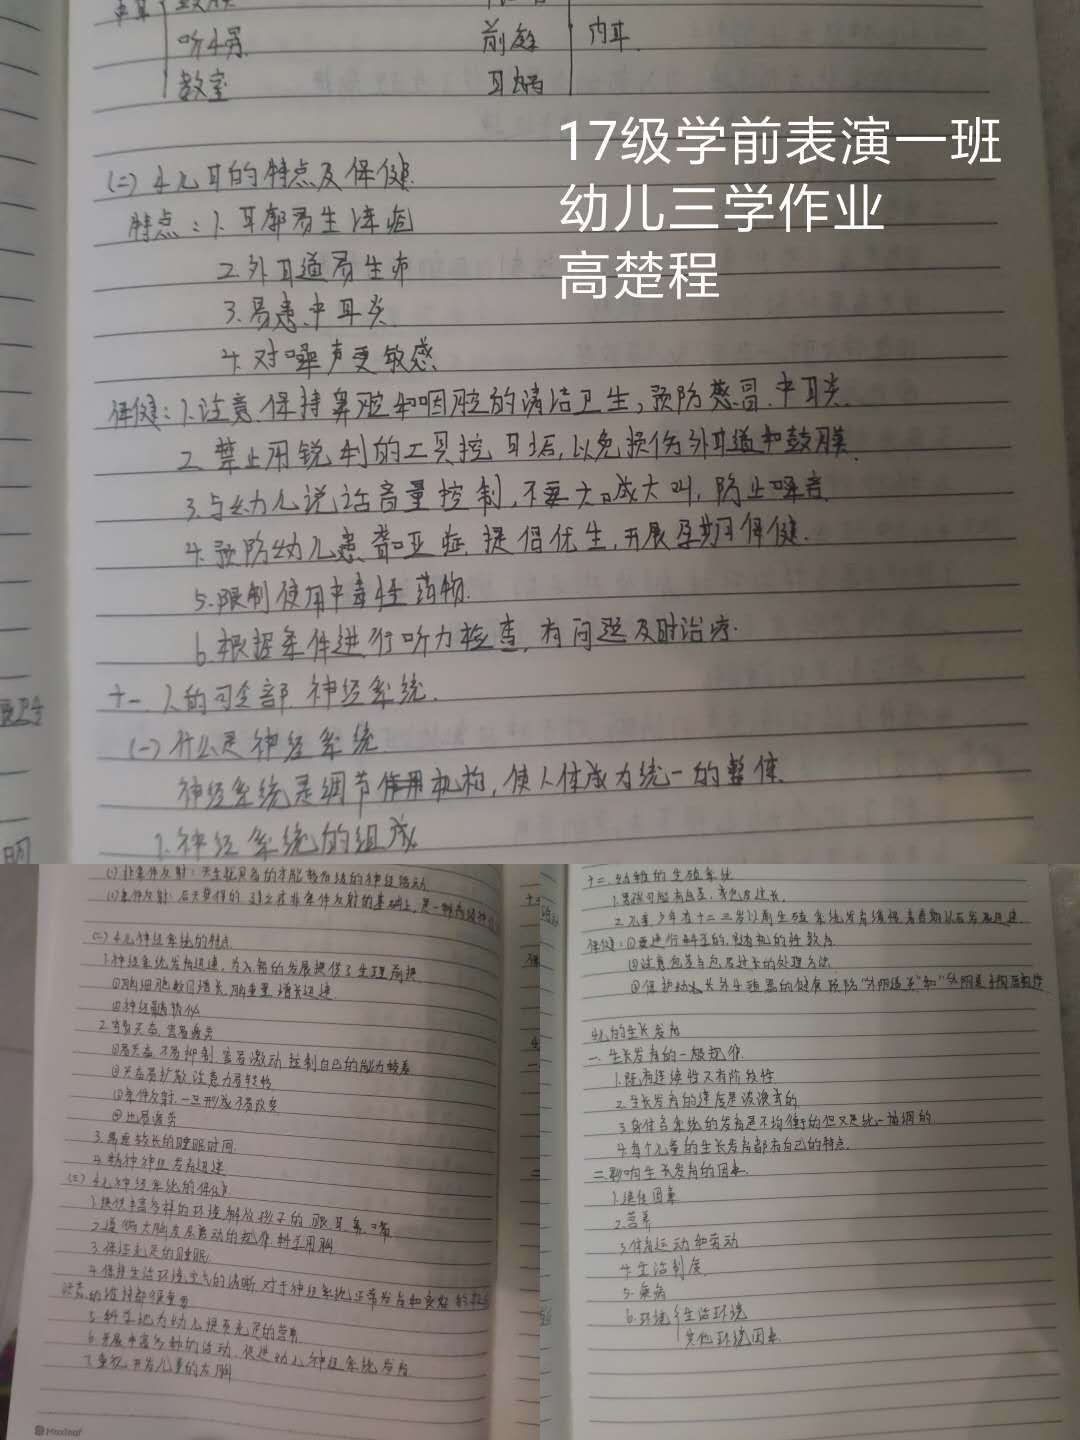 中耳 鼓膜
听小骨 前庭 内耳
鼓室 耳蜗
17级学前表演一班
幼儿三学作业
高楚程
(二)幼儿耳的特点及保健
特点:1.耳廓易生冻疮
2.外耳道易生疖
3.易患中耳炎
4.对噪声更敏感
保健:1.注意保持鼻腔和咽腔的清洁卫生,预防感冒.中耳炎.
2.禁止用锐利的工具挖耳垢,以免损伤外耳道和鼓膜.
3.与幼儿说话音量控制,不要大喊大叫,防止噪音
4.预防幼儿患聋哑症,提倡优生,开展孕期保健.
5.限制使用中毒性药物.
6.根据条件进行听力检查,有问题及时治疗.
十一.人的司令部 神经系统.
(一)什么是神经系统
神经系统是调节作用机构,使人体成为统一的整体.
1.神经系统的组成
(1)非条件反射:天生就具备的才能 的神经活动
(2)条件反射:后天获得的,建立在非条件反射的基础上,是一种高级神经
(二)幼儿神经系统的特点
1.神经系统发育迅速,为入智的发展提供了生理前提
①脑细胞数目增长,脑重量增长迅速
②神经髓鞘化
2.容易兴奋,容易疲劳
①易兴奋,不易抑制 容易激动 控制自己的能力较差
②兴奋易扩散,注意力易转移
③条件反射一旦形成不易改变
④也易疲劳
3.需要较长的睡眠时间.
4.植物神经发育迅速
(三)幼儿神经系统的保健
1.提供丰富多样的环境,解放孩子的眼.耳.鼻.嘴
2.遵循大脑皮层活动的规律,科学用脑
3.保证充足的睡眠
4.保持生活环境空气的清晰,对于神经系统正常发育和
的维持都很重要
5.科学地为幼儿提供充足的营养
6.开展丰富多彩的活动,促进幼儿神经系统发育
7.重视开发儿童的右脑
Maxleaf
十二.幼稚的生殖系统
1.男孩可能有包茎,或包皮过长.
2.儿童少年在十二三岁以前生殖系统发育缓慢,青春期以后发展迅速
保健:①要进行科学的,随机的性教育
②注意包茎与包皮过长的处理方法
③保护幼儿外生殖器的健康 预防“外阴道炎”和“外阴
幼儿的生长发育
一.生长发育的一般规律.
1.既有连续性又有阶段性
2.生长发育的速度是波浪式的
3.身体各系统的发育是不均衡的但又是统一协调的.
4.每个儿童的生长发育都有自己的特点.
二.影响生长发育的因素.
1.遗传因素
2.营养
3.体育运动和劳动
4.生活制度.
5.疾病
6.环境 生活环境
其他环境因素